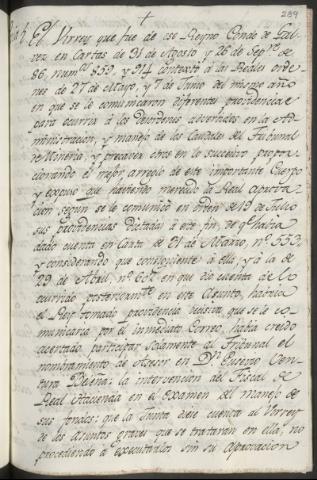 289
El Virrey que fue de ese Reyno Conde de Gal-
vez en Cartas de 31 de Agosto y 26 de Sepre. de
86, numos. 839, y 914 contextó á las Reales orde-
nes de 27 de Mayo, y 7 de Junio del mismo año
en que se le comunicaron diferentes providencias
para ocurrir á los desordenes advertidos en la Ad-
ministracion, y manejo de los Caudales del Tribunal
de Mineria, y precaver otros en lo sucesivo propor-
cionando el mejor arreglo de este importante Cuerpo
y expuso que haviendo merecido la Real aproba-
cion, segun se le comunicó en orden de 19 de Julio
sus providencias dictadas á este fin, de qe. havia
dado cuenta en Carta de 21 de Marzo, no. 553,
y considerando que consiguiente á ella, y á la de
29 de Abril, no. en que dió cuenta de lo
ocurrido posteriormte. en este Asunto, havria
el Rey tomado providencia decisiva que se le co-
municaria por el inmediato Correo, havia creido
acertado participar solamente al Tribunal el
nombramiento de Asesor en Dn. Eusevio Ven-
tura Beleña: la intervencion del Fiscal de
Real Hacienda en el examen del manejo de
sus fondos: que la Junta diese cuenta al Virrey
de los Asuntos graves que se trataran en ella, no
procediendo á executarlos sin su aprovacion